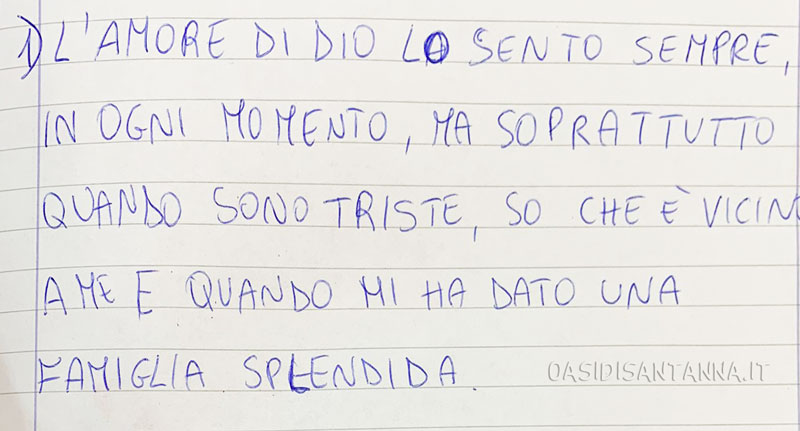 1) L'AMORE DI DIO LO SENTO SEMPRE,
IN OGNI MOMENTO, MA SOPRATTUTTO
QUANDO SONO TRISTE, SO CHE È VICINO
A ME E QUANDO MI HA DATO UNA
FAMIGLIA SPLENDIDA.
OASIDISANTANNA.IT